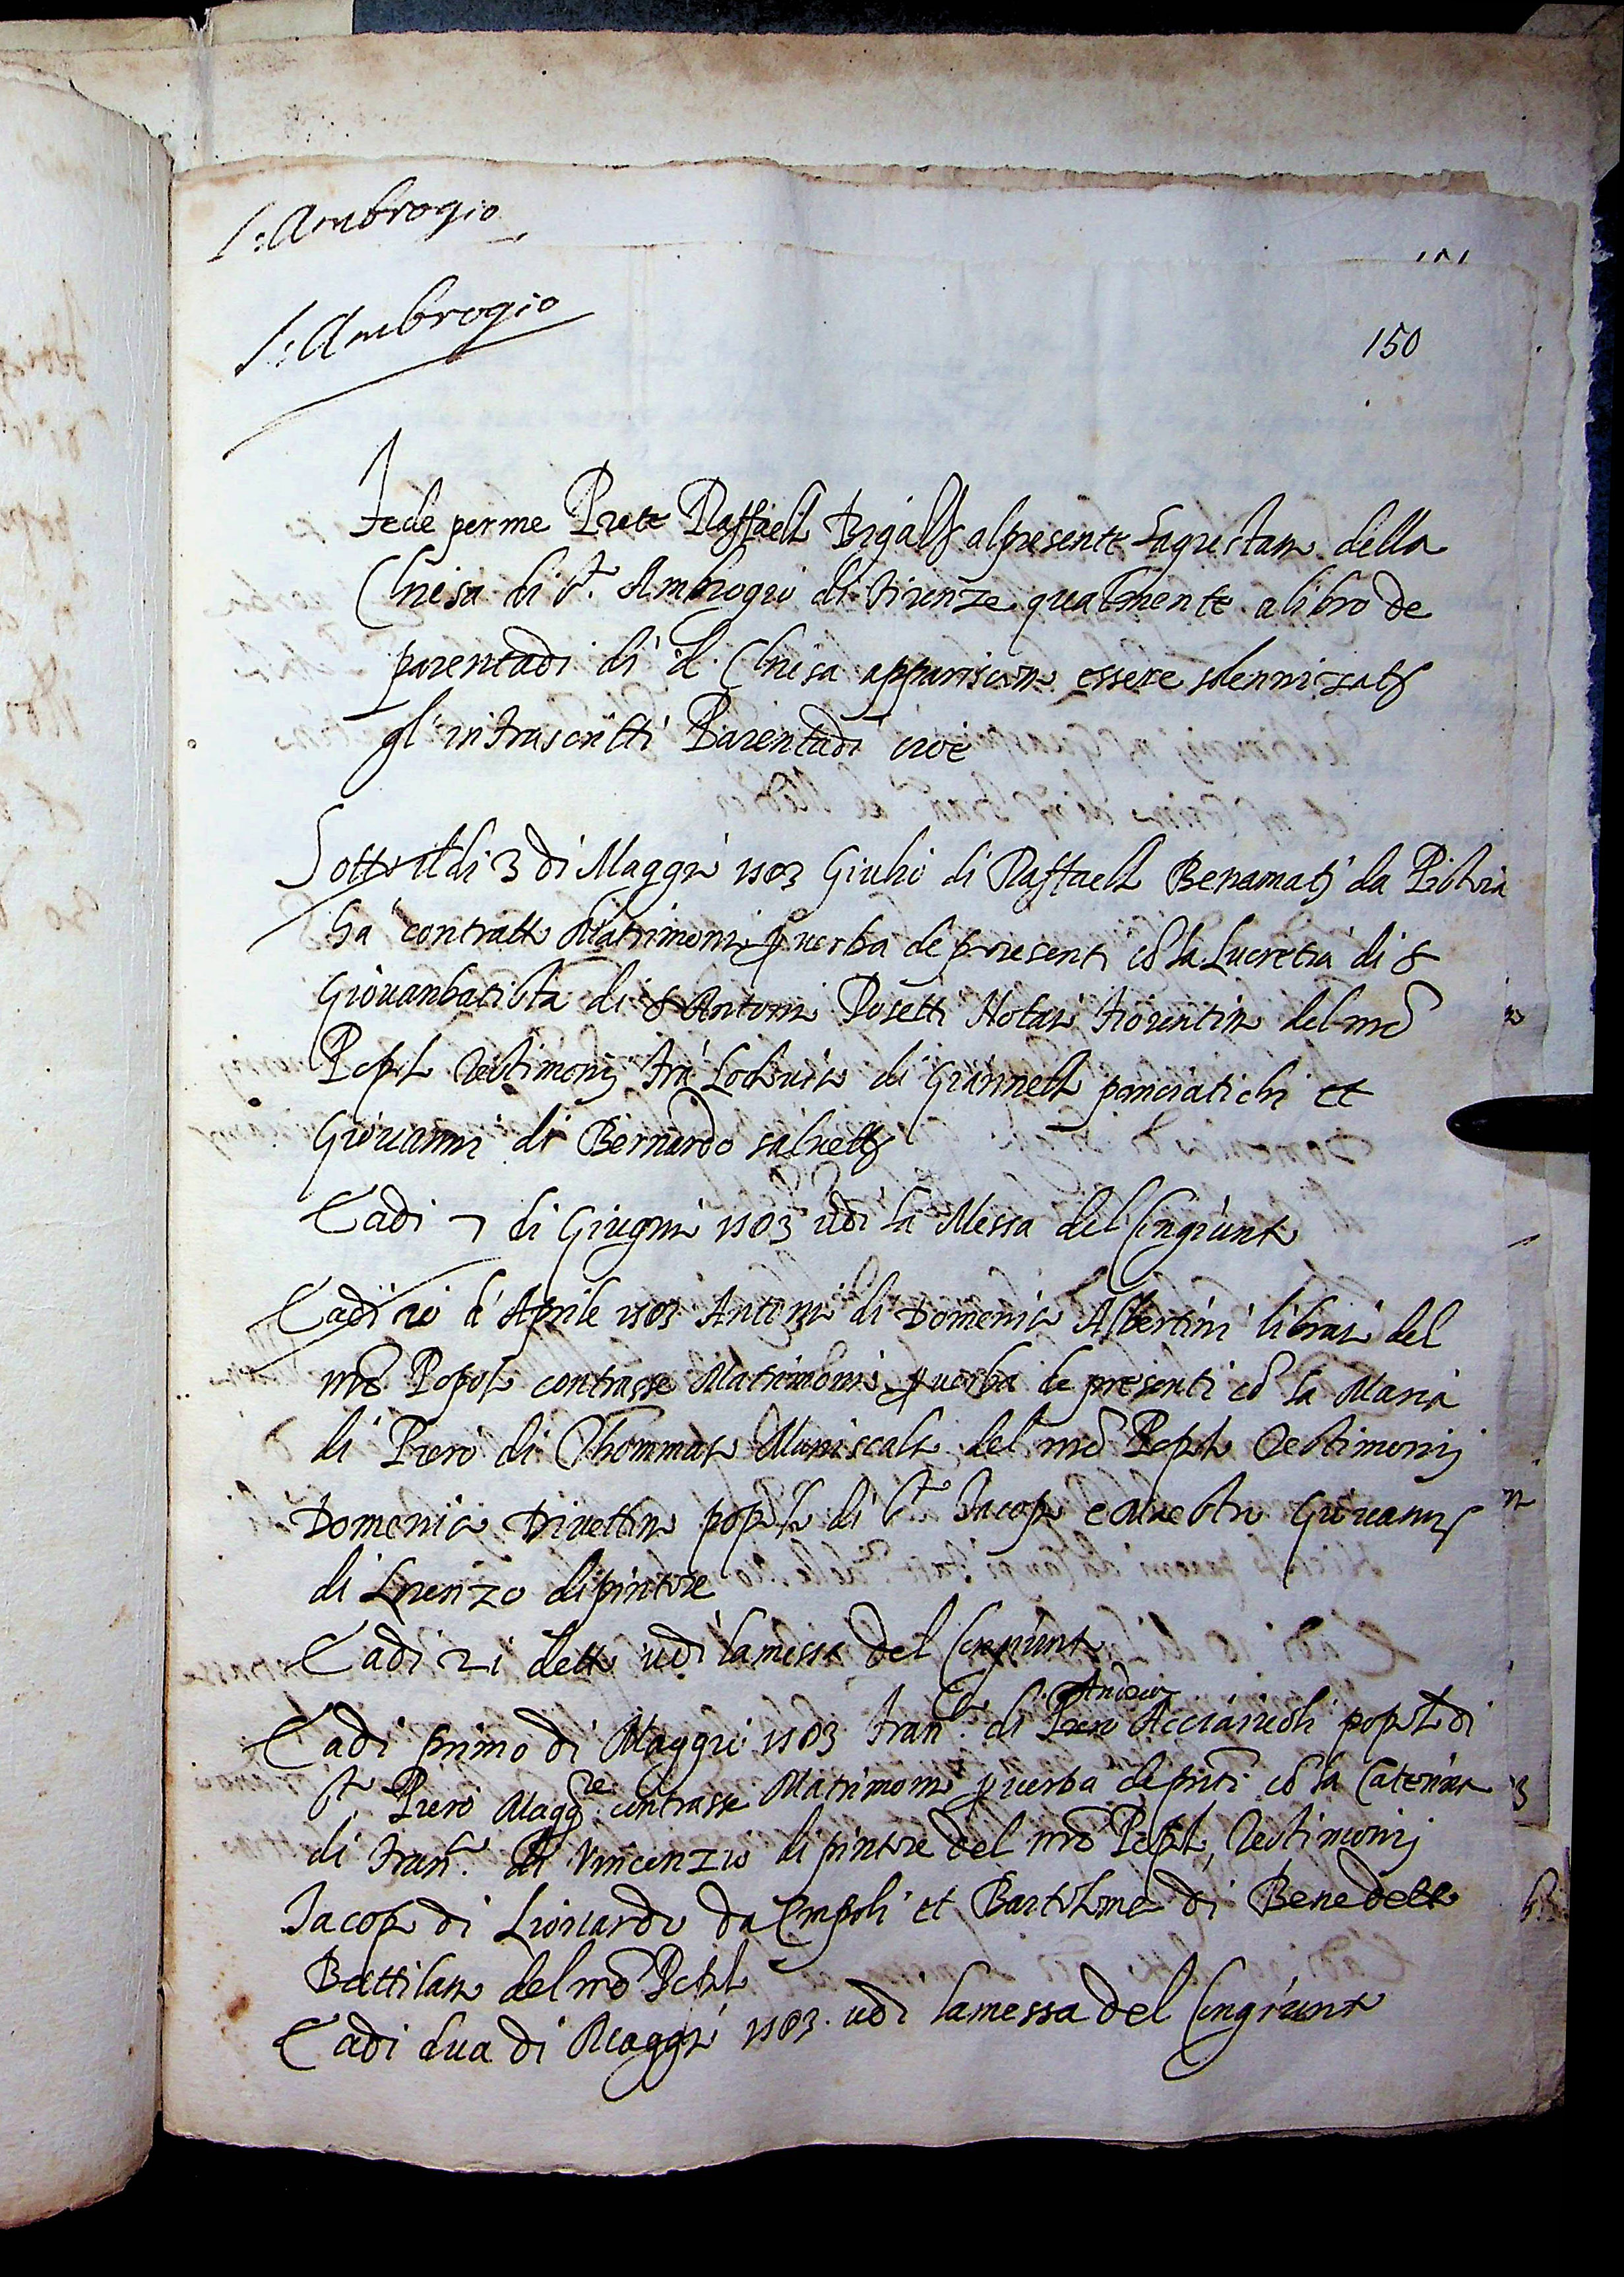 S: Ambrogio
S: Ambrogio
150
Fede per me Prete Raffaello alpresente Sagrestano della
Chiesa di S.to Ambrogio di Firenze qualmente a libro de
parentadi di d. Chiesa appariscono essere solennizati
gl'infrascritti Parentadi cioè
Sotto il di 3 di Maggio 1583 Giulio di Raffaello Benamati da Pistoia
ha contratto Matrimonio p verba de presenti cō la Lucretia di s.
Giovanbatista di s. Antonio Notaio fiorentino del nrō
Popolo Testimonij frà Lodovico di Giannello panciatichi et
Giovanni di Bernardo salvetti
E adi 7 di Giugno 1583 udi la Messa del Congiunto
E adi 20 d'Aprile 1583 Antonio di Domenico Albertini libraio del
nrō Popolo contrasse Matrimonio p verba de presenti cō la Maria
di Piero di Thommaso Maniscalco del nrō Popolo Testimonij
Domenico popolo di S.to Jacopo Giovanni
di Lorenzo dipintore
E adi 21 detto udi la messa del Congiunto
E adi primo di Maggio 1583 Fran.co di Piero Andrea Acciaiuoli popolo di
S.to Piero Magg.re contrasse Matrimonio p verba de pñti cō la Caterina
di Fran.co di Vincenzio dipintore del nrō Popolo, Testimonij
Jacopo di Lionardo da Empoli et Bartolomeo di Benedetto
Battilano del nrō Popolo
E adi dua di Maggio 1583. udi la messa del Congiunto